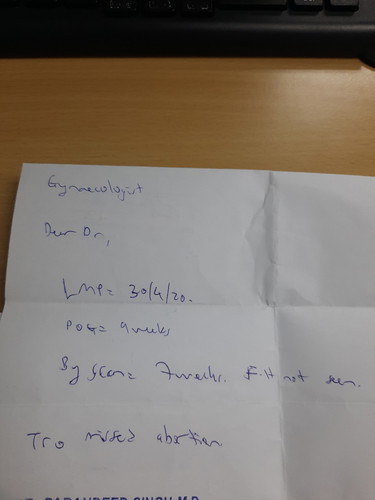 Gynaecologist
Dear Dr,
LMP= 30/4/20.
POG= 9 weeks
By scan= 7 weeks. F.H not seen.
TRO missed abortion